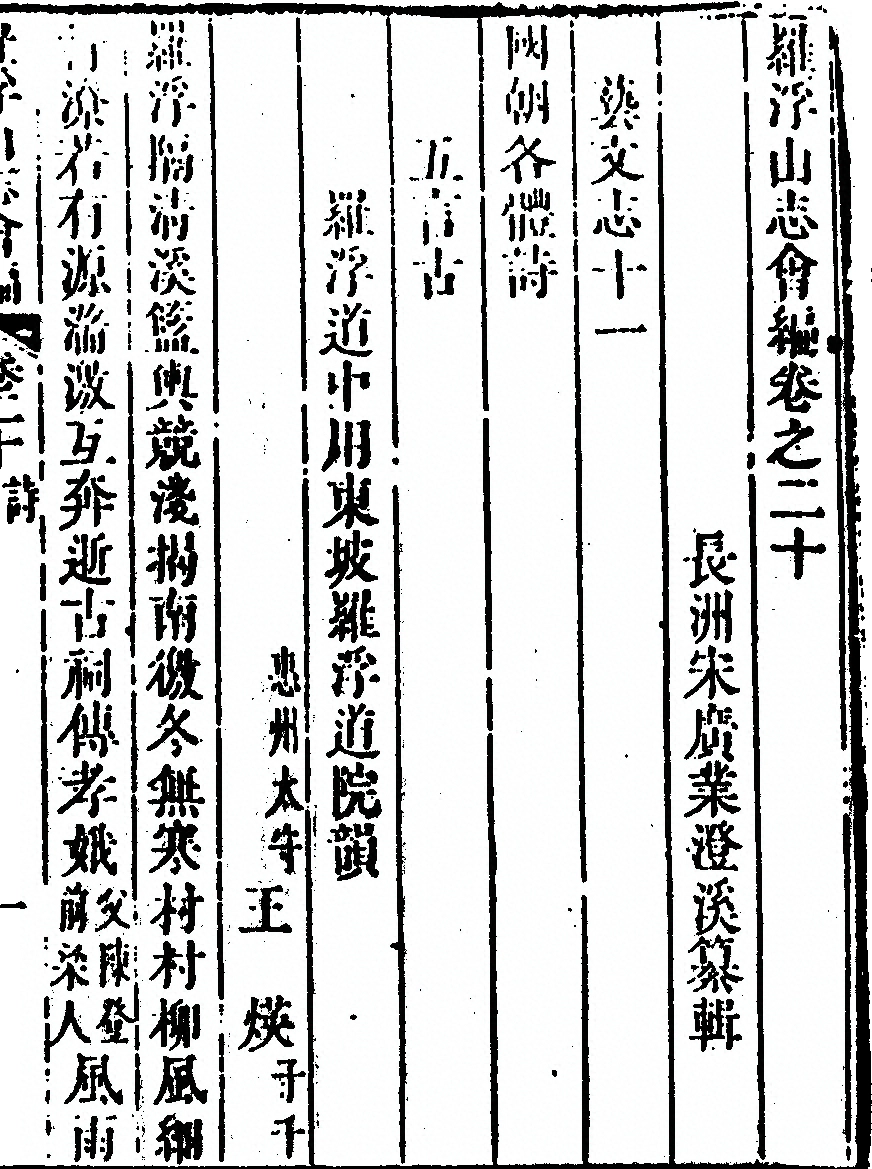 羅浮山志會編卷之二十
長洲宋廣業澄溪纂輯
藝文志十一
國朝各體詩
五言古
羅浮道中用東坡羅浮道院韻
惠州太守 王 煐 子千
羅浮隔淸溪籃輿競淩揭南徼冬無寒村村柳風細
行潦若有源湍激互奔逝古祠傳孝娥父陳登前梁人風雨
羅浮山志會編 卷二十 詩 一